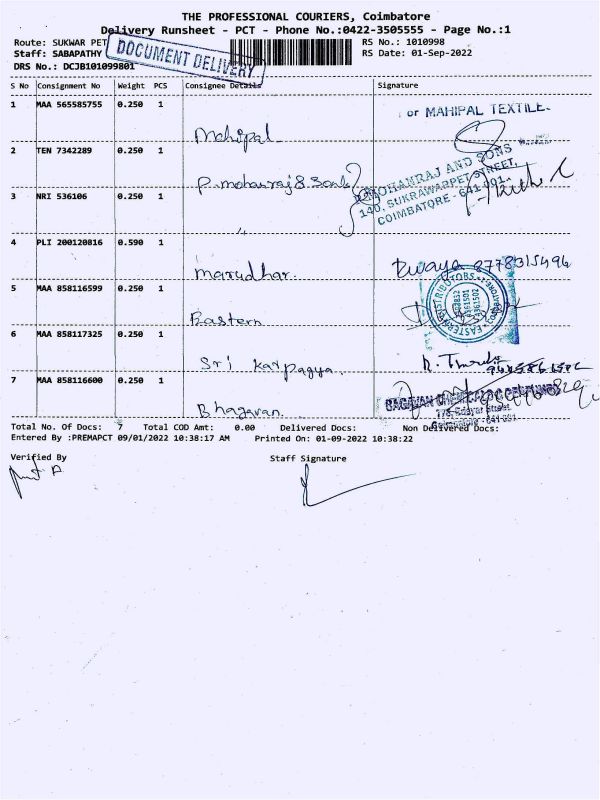 THE PROFESSIONAL COURIERS, Coimbatore
Delivery Runsheet - PCT - Phone No.:0422-3505555 - Page No.:1
Route: SUKWAR PET
RS No.: 1010998
Staff: SABAPATHY
RS Date: 01-Sep-2022
DRS No.: DCJB101099801
DOCUMENT DELIVERY
S No Consignment No Weight PCS Consignee Details Signature
1 MAA 565585755 0.250 1
Mahipal
or MAHIPAL TEXTILE
2 TEN 7342289 0.250 1
P. mohanraj & Sons
MOHANRAJ AND SONS
140, SUKRAWARPET STREET,
COIMBATORE - 641 001.
3 NRI 536106 0.250 1
"
4 PLI 200120816 0.590 1
marudhar. 8778315496
5 MAA 858116599 0.250 1
Eastern
EASTERN DISTRIBUTORS
6 MAA 858117325 0.250 1
Sri Karpagya.
7 MAA 858116600 0.250 1
Bhagavan.
Street
Total No. Of Docs: 7 Total COD Amt: 0.00 Delivered Docs: Non Delivered Docs:
Entered By :PREMAPCT 09/01/2022 10:38:17 AM Printed On: 01-09-2022 10:38:22
Verified By Staff Signature